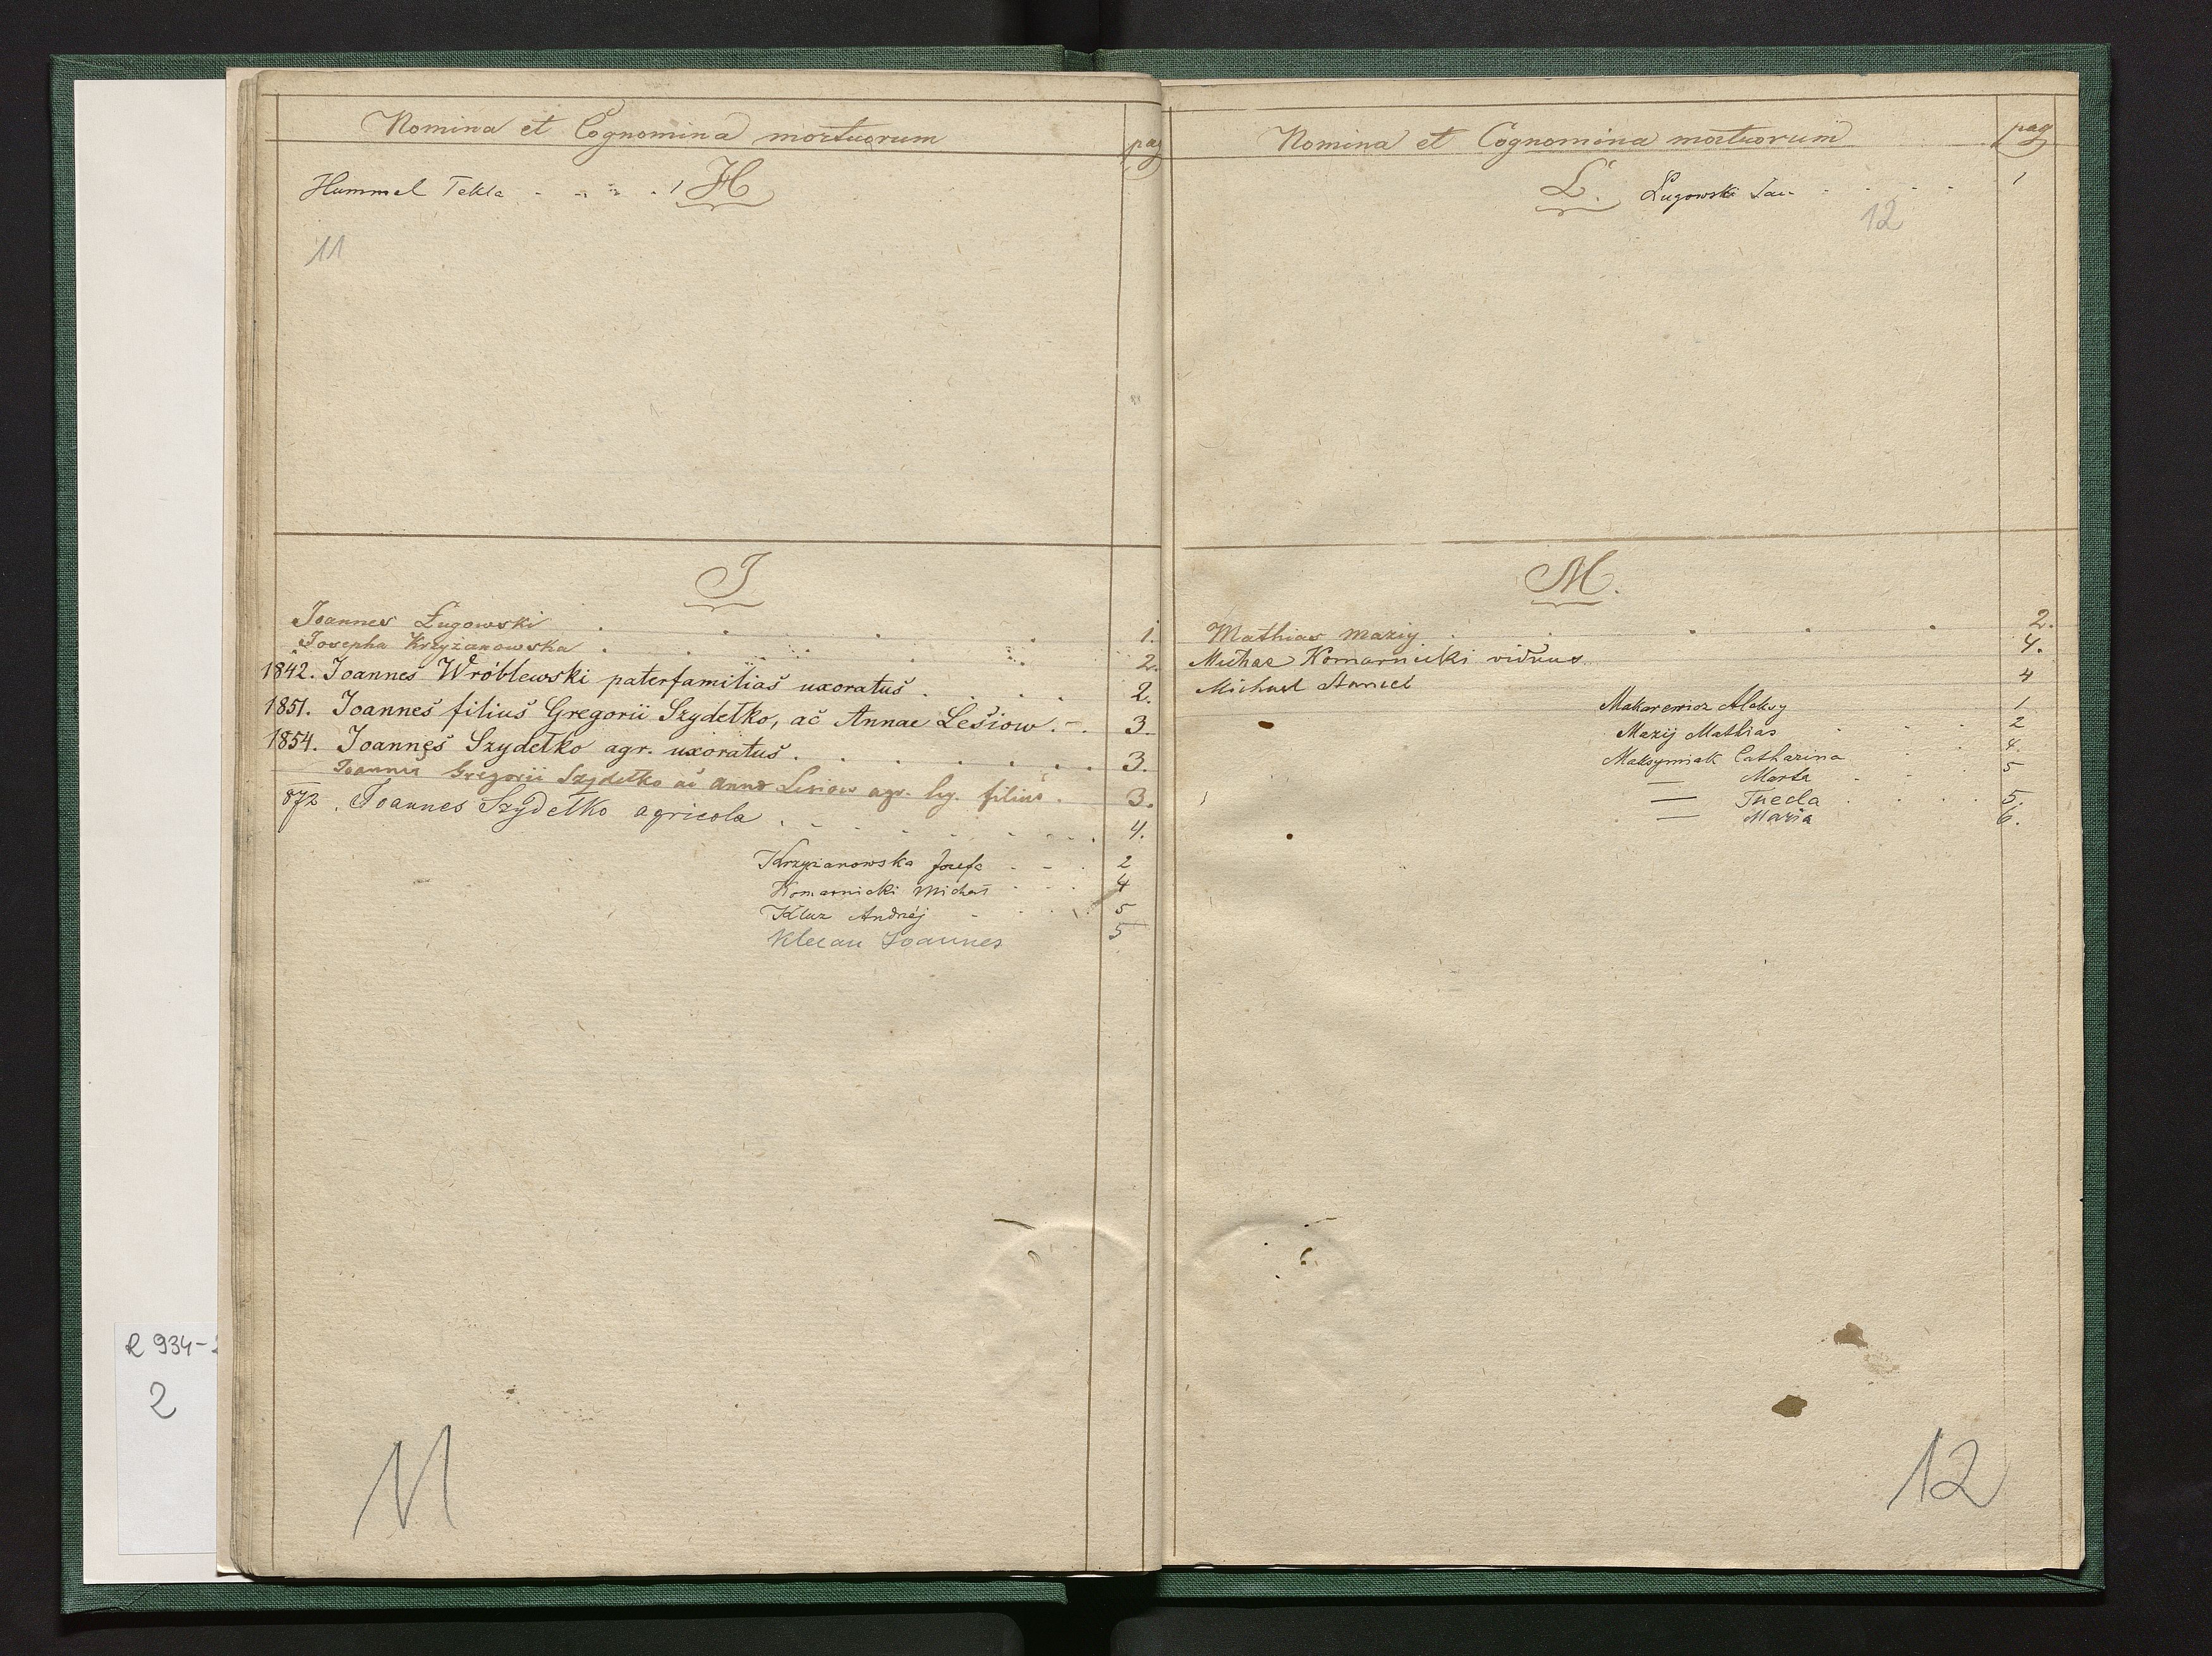 Nomina et Cognomina mortuorum pag
Hummel Tekla 1 H
11
I
Joannes Ługowski 1.
Josepha Krzyżanowska 2.
1842. Joannes Wróblewski paterfamilias uxoratus 2.
1851. Joannes filius Gregorii Szydełko, ac Annae Lesiow. 3.
1854. Joannes Szydełko agr. uxoratus 3.
Joannes Gregorii Szydełko ac Anna Lesiow agr. leg. filius. 3.
872. Joannes Szydełko agricola 4.
Krzyżanowska Józefa 2
Komarnicki Michał 4
Kluz Andrzej 5
Klecan Joannes 5
11
R 934-2
2
Nomina et Cognomina mortuorum pag
L. Ługowski Jan 1
12
M.
Mathias Maziy 2.
Michae Komarnicki viduus 4.
Michael 4
Makarewicz Aleksy 1
Mazij Mathias 2
Maksymiak Catharina 4.
— Marta 5
— Thecla 5.
— Maria 6.
12